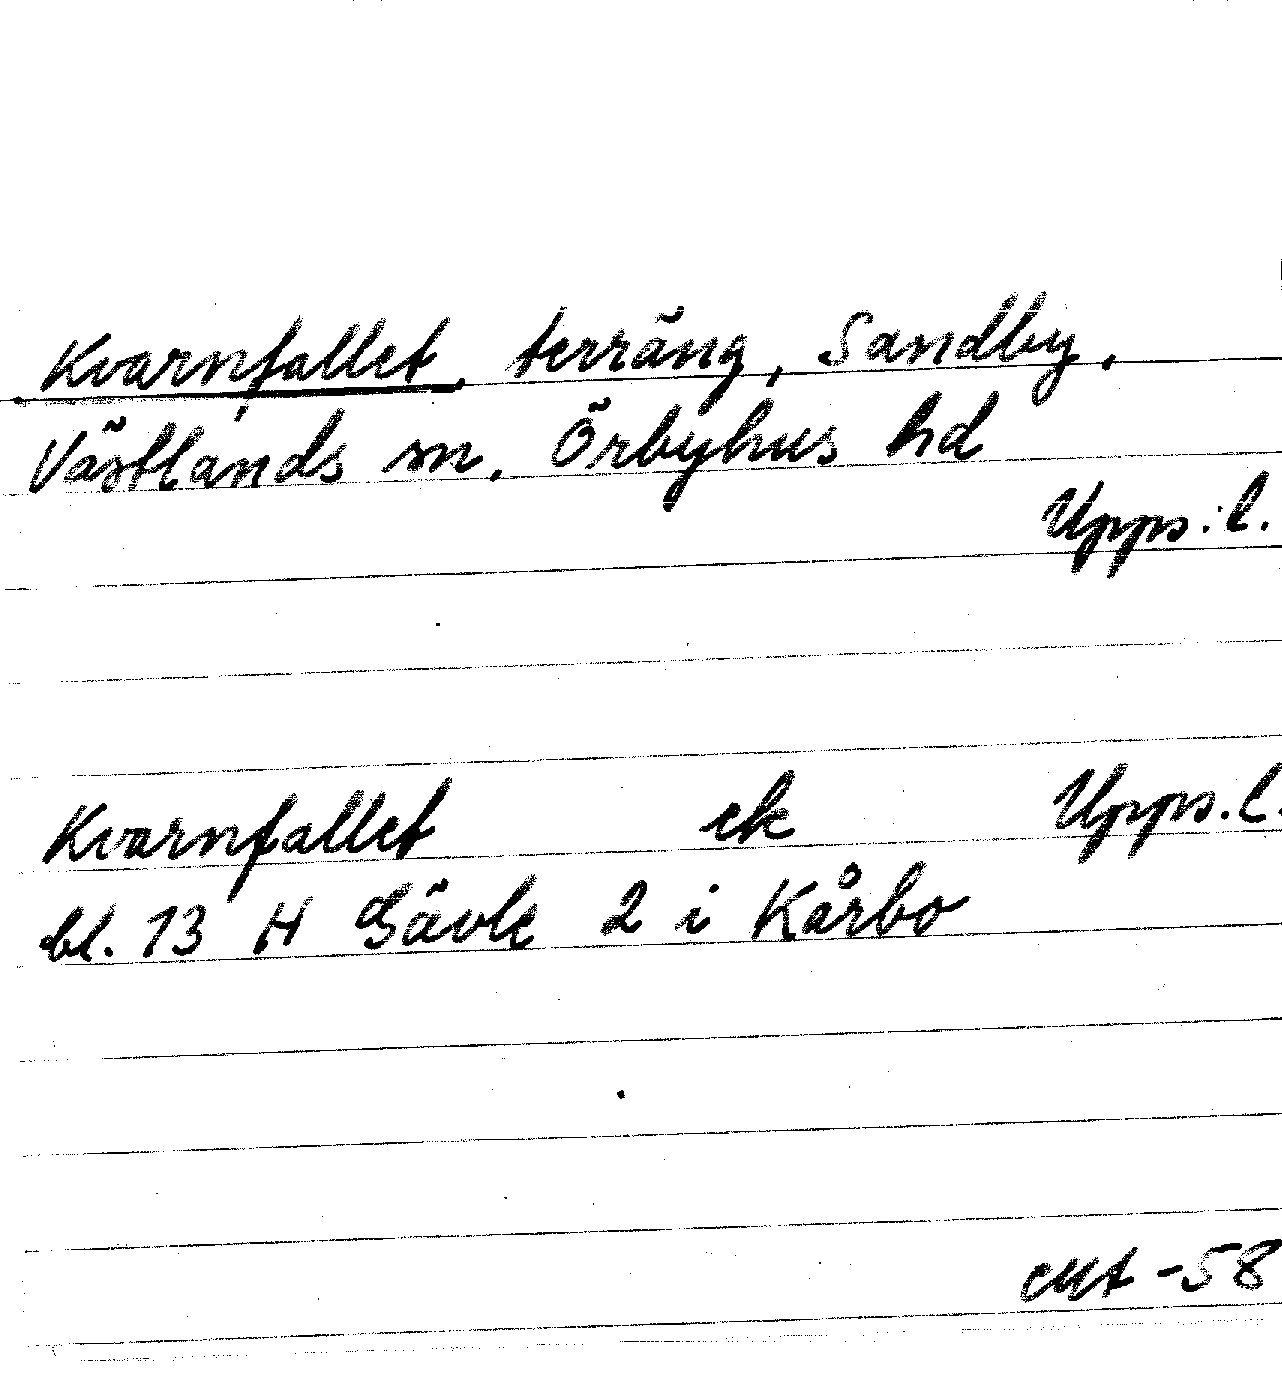 Kvarnfallet, terräng, Sandby,
Västlands sn, Örbyhus hd
Upps. l.
Kvarnfallet ek Upps. l.
bl. 13 H Gävle 2 i Kårbo
-58